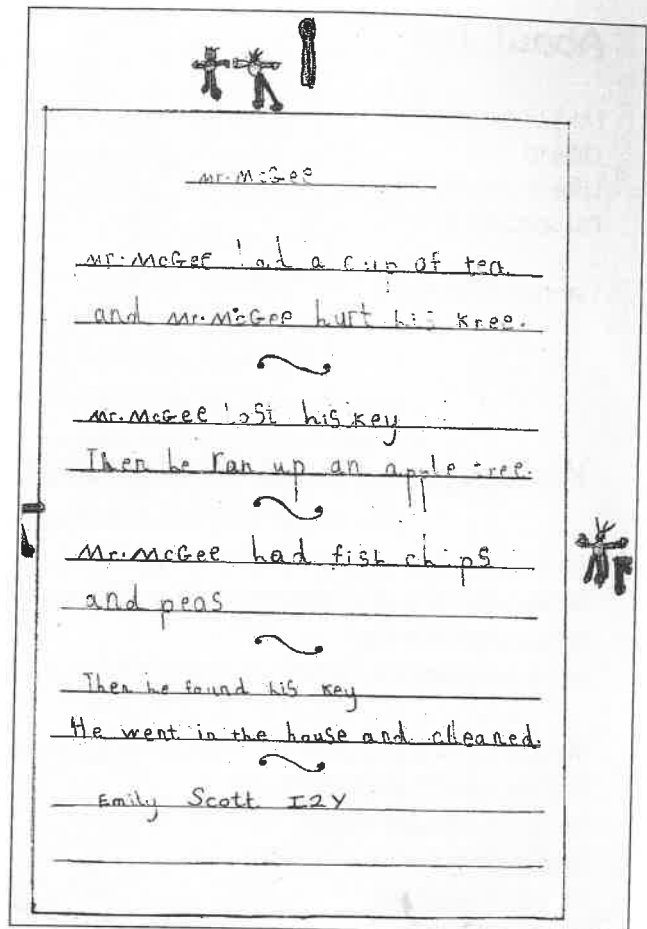 Mr. McGee
Mr. McGee had a cup of tea
and Mr. McGee hurt his knee.
Mr. McGee lost his key
Then he ran up an apple tree.
Mr. McGee had fish chips
and peas
Then he found his key
He went in the house and cleaned.
Emily Scott I2Y